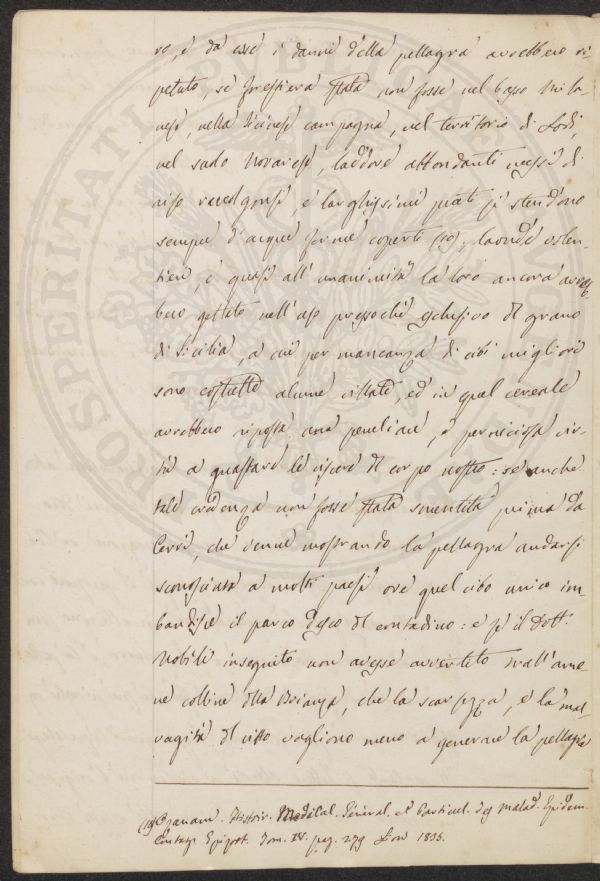 ro, e da esse i danni della pellagra avrebbero ri-
petuto, se forestiera stata non fosse nel basso Mila-
nese, nella Ticinese campagna, nel territorio di Lodi,
nel suolo Novarese, laddove abbondanti messi di
riso veggonsi, e larghissimi prati si stendono
sempre d'acque ferme coperti (19), laonde volen-
tieri, e quasi all'unanimità la loro ancora avreb-
bero gettato nell'uso pressoché esclusivo del grano
di Sicilia, a cui per mancanza di cibi migliori
sono costrette alcune cittate, ed in quel cereale
avrebbero riposta una peculiare, e perniciosa vir-
tù a guastare le viscere del corpo nostro: se anche
tale credenza non fosse stata smentita prima da
Cerri, che venne mostrando la pellagra andarsi
sconosciuta a molti paesi ove quel cibo unico im-
bandisce il parco desco del contadino: e se il Dott.
Nobili inseguito non avesse avvertito sull'ame-
ne colline della Brianza, che la scarsezza, e la mal-
vagità del vitto vagliono meno a generare la pellagra
(19) Ozanam. Histoir. Medical. Général. et Particul. des malad. Epidem.
Contag. Epizoot. Tom. IV. pag. 279 Lion 1835.
PROSPERITATI PUBLICAE